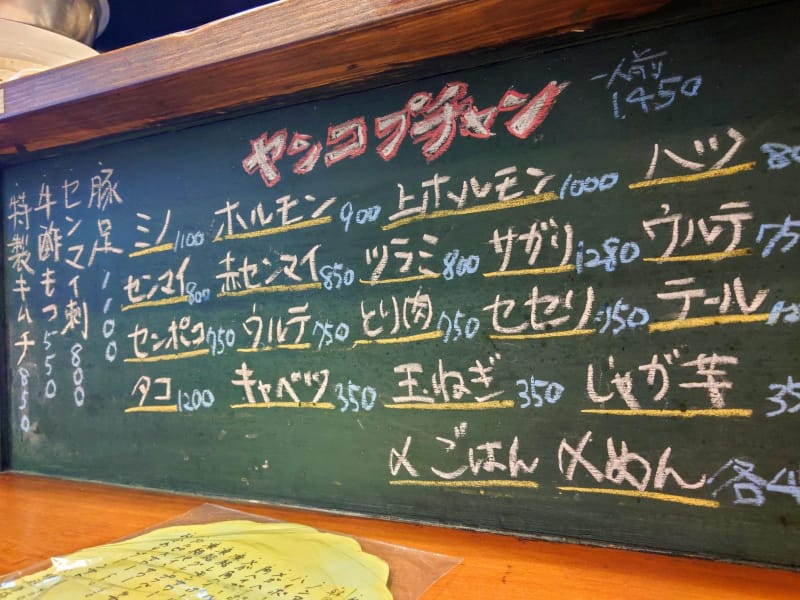 ヤンコプチャン
一人前 1450
ミノ 1100 ホルモン 900 上ホルモン 1000 ハツ
センマイ 800 赤センマイ 850 ツラミ 800 サガリ 1280 ウルテ
センポコ 750 ウルテ 750 とり肉 750 セセリ テール
タコ 1200 キャベツ 350 玉ねぎ 350 じゃが芋
〆ごはん 〆めん 各
豚足 1100
センマイ刺 800
牛酢もつ 550
特製キムチ 850